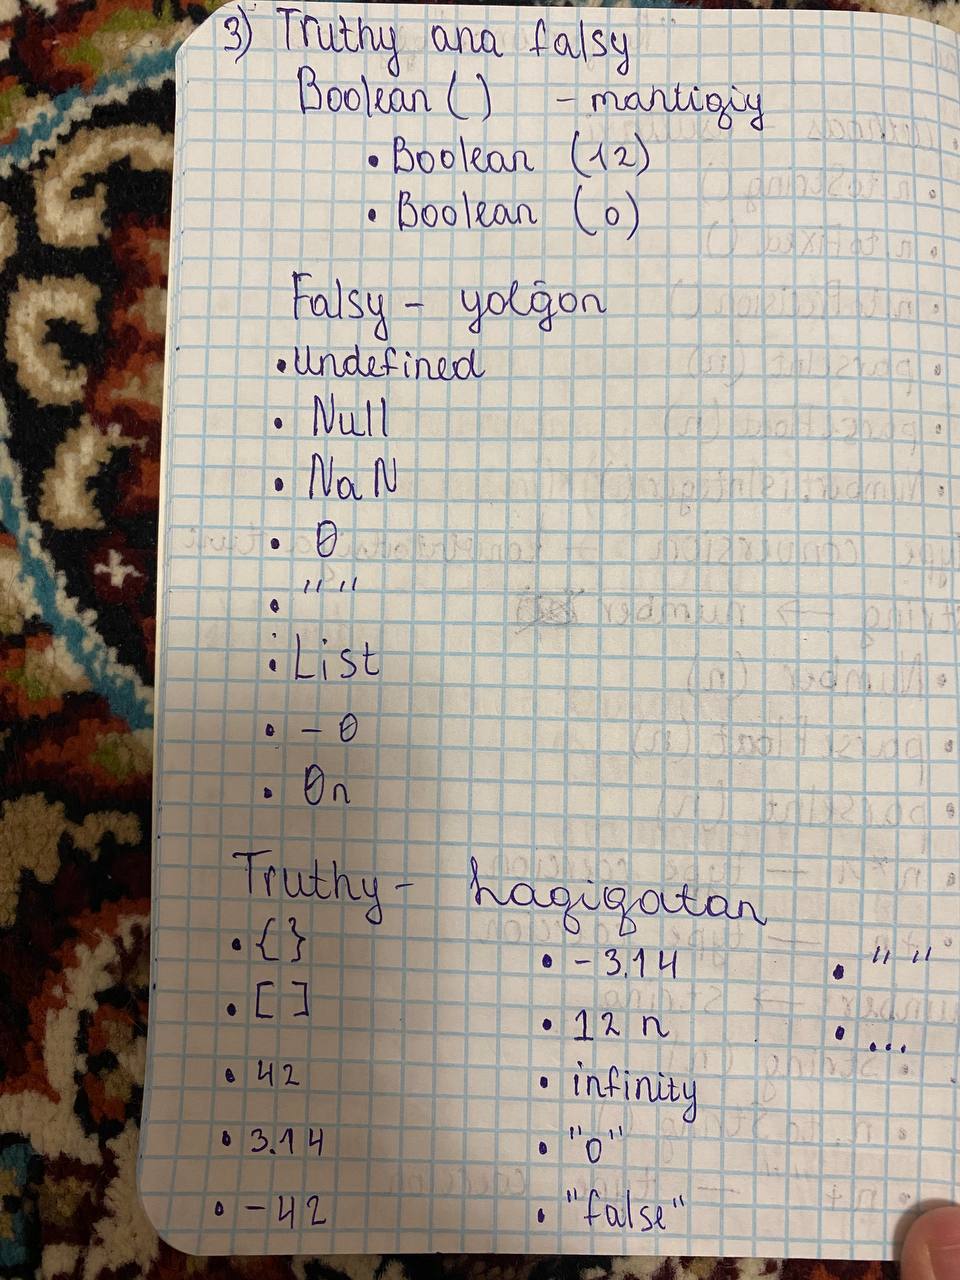 3) Truthy ana falsy
Boolean ( ) - mantiqiy
• Boolean (12)
• Boolean (0)
Falsy - yolğon
• Undefined
• Null
• NaN
• 0
• " "
• List
• - 0
• 0n
Truthy - haqiqatan
• { }
• [ ]
• 42
• 3.14
• -42
• - 3.14
• 12 n
• infinity
• "0"
• "false"
• " "
• ...